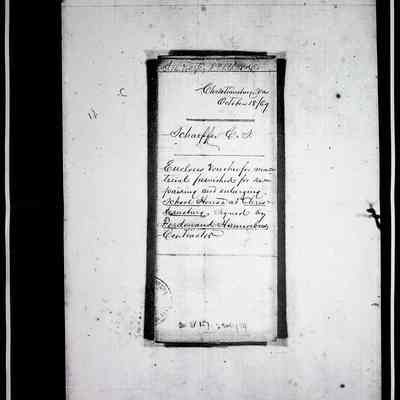 Christiansburg Va
October 18/69
Schaeffer C. S.
Encloses Voucher for ma-
terial furnished for re-
pairing and enlarging
School House at Chris-
tiansburg signed by
Ferdinand
Contractor